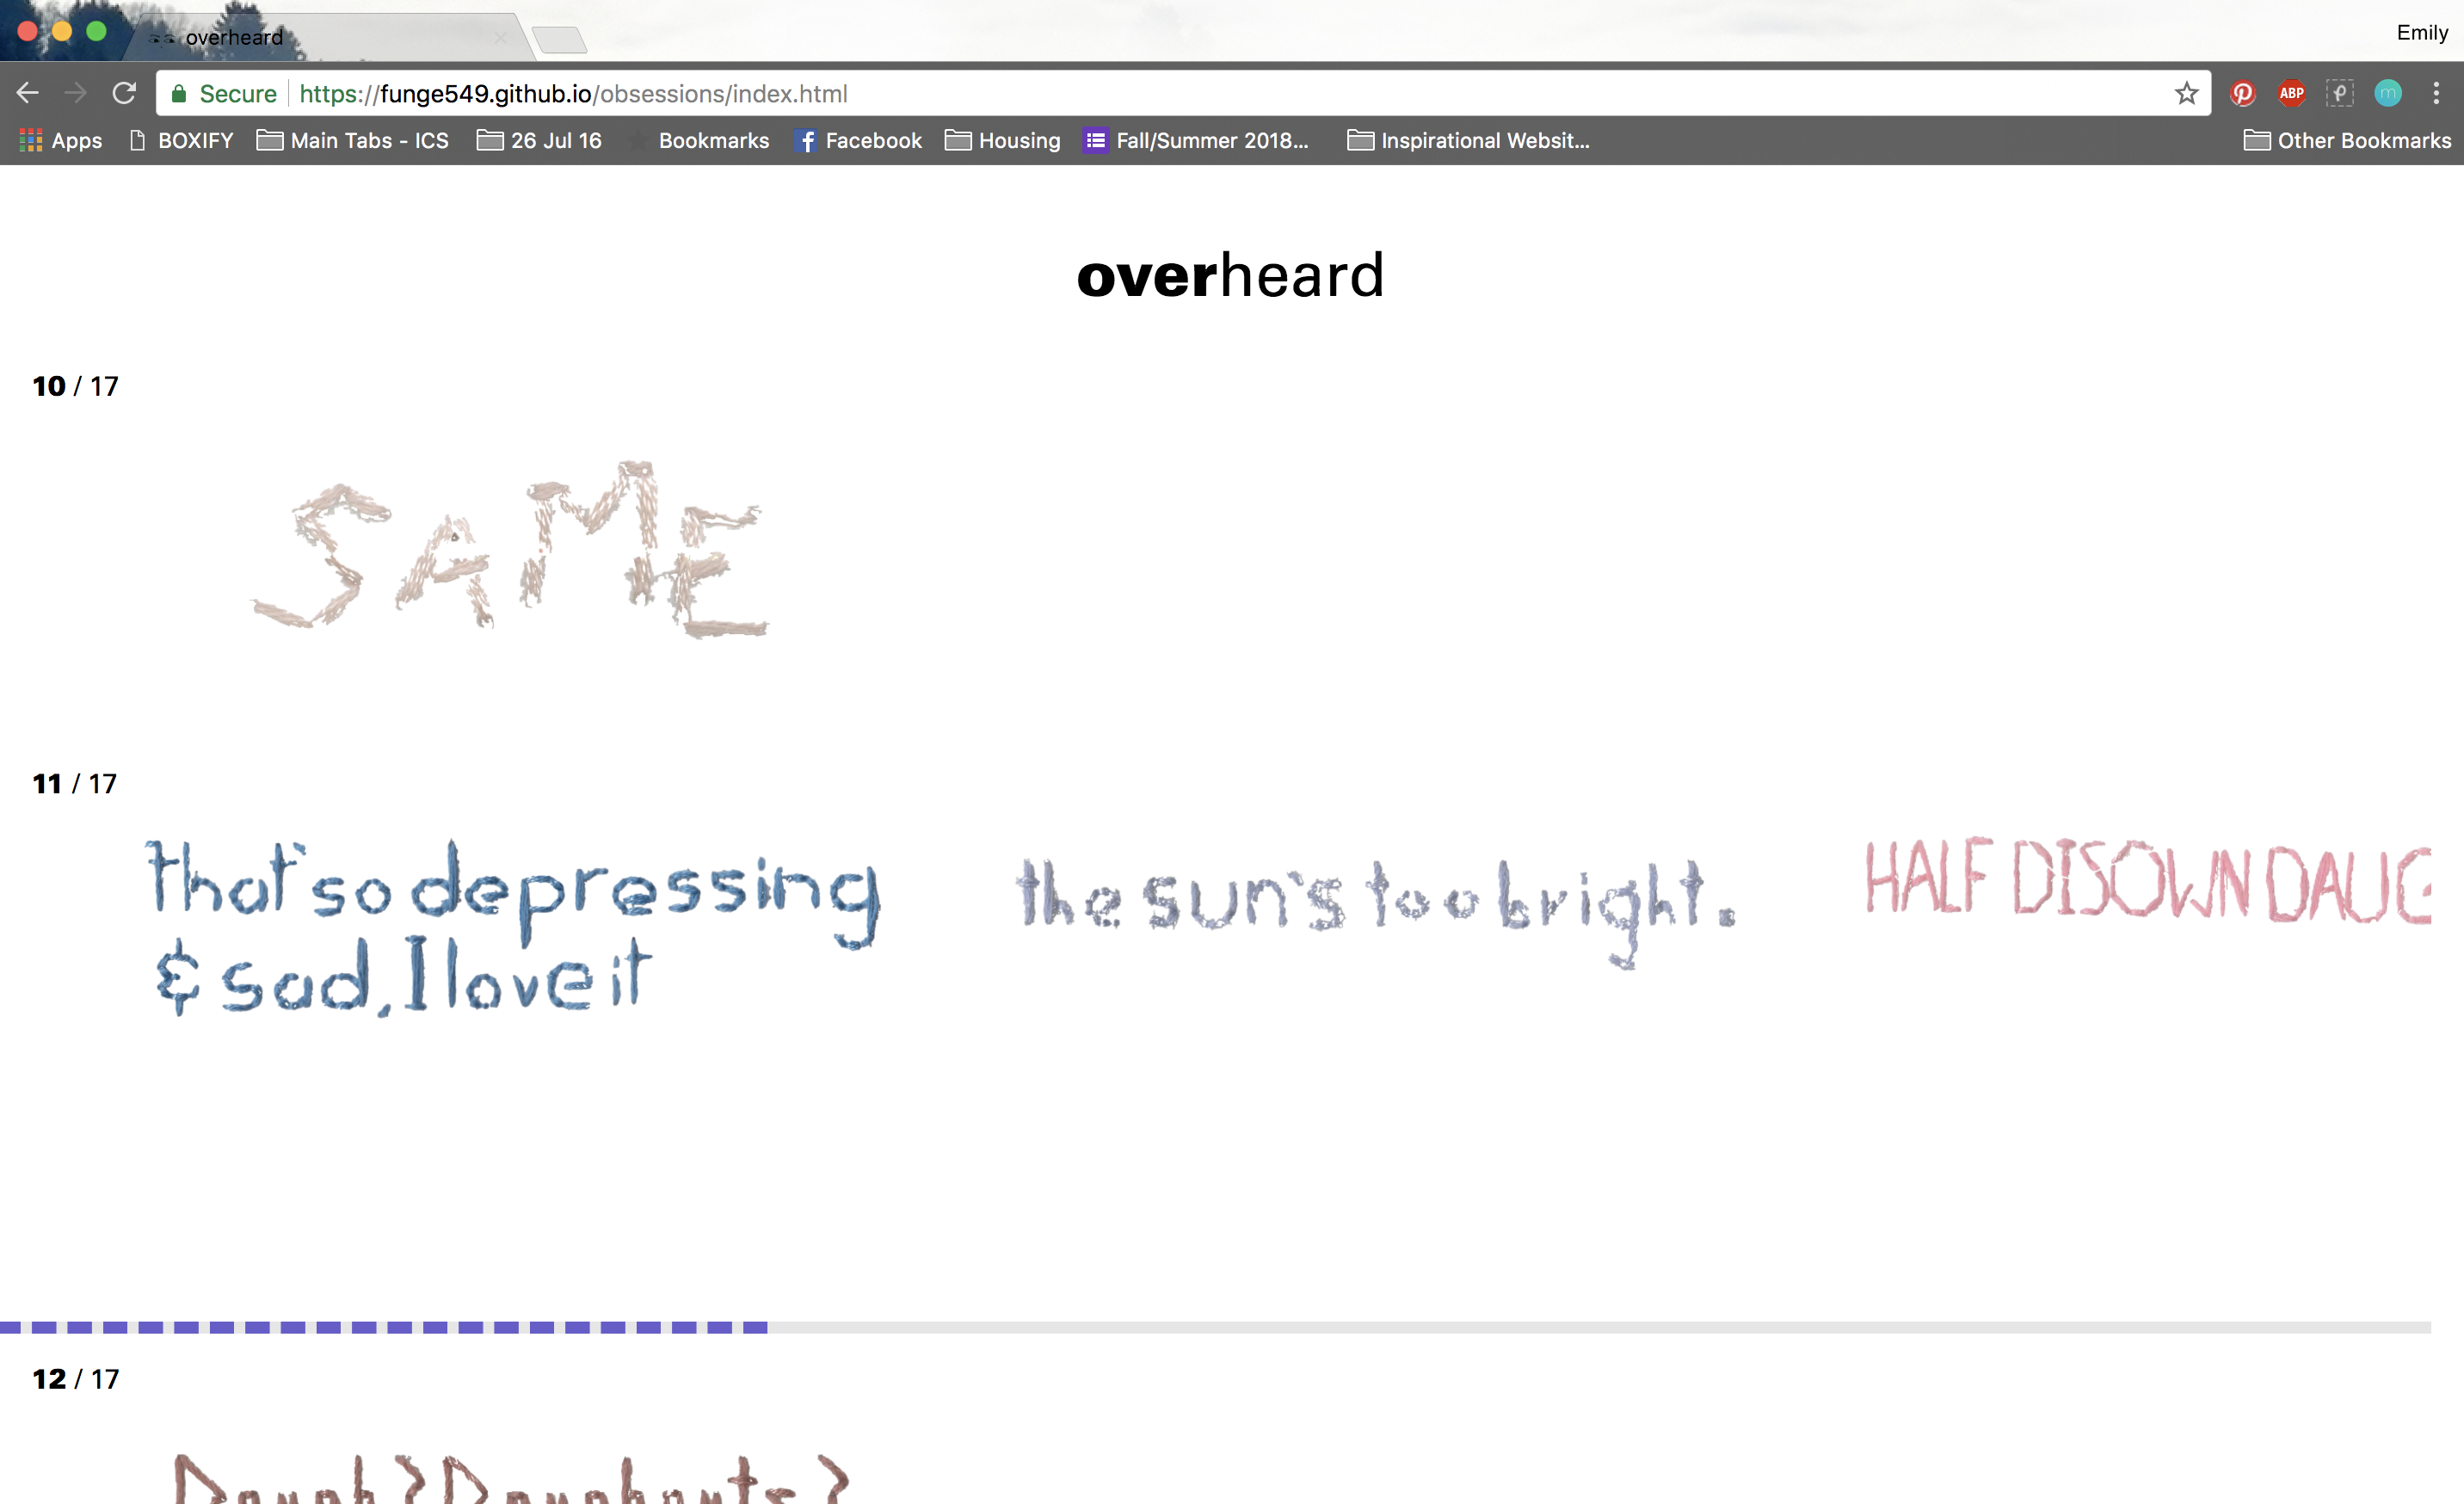 overheard
Emily
Secure https://funge549.github.io/obsessions/index.html
ABP
m
Apps BOXIFY Main Tabs - ICS 26 Jul 16 Bookmarks Facebook Housing Fall/Summer 2018... Inspirational Websit... Other Bookmarks
overheard
10 / 17
SAME
11 / 17
that's so depressing
& sad, I love it
the sun's too bright.
HALF DISOWN DAUG
12 / 17
Dough? Doughnuts?